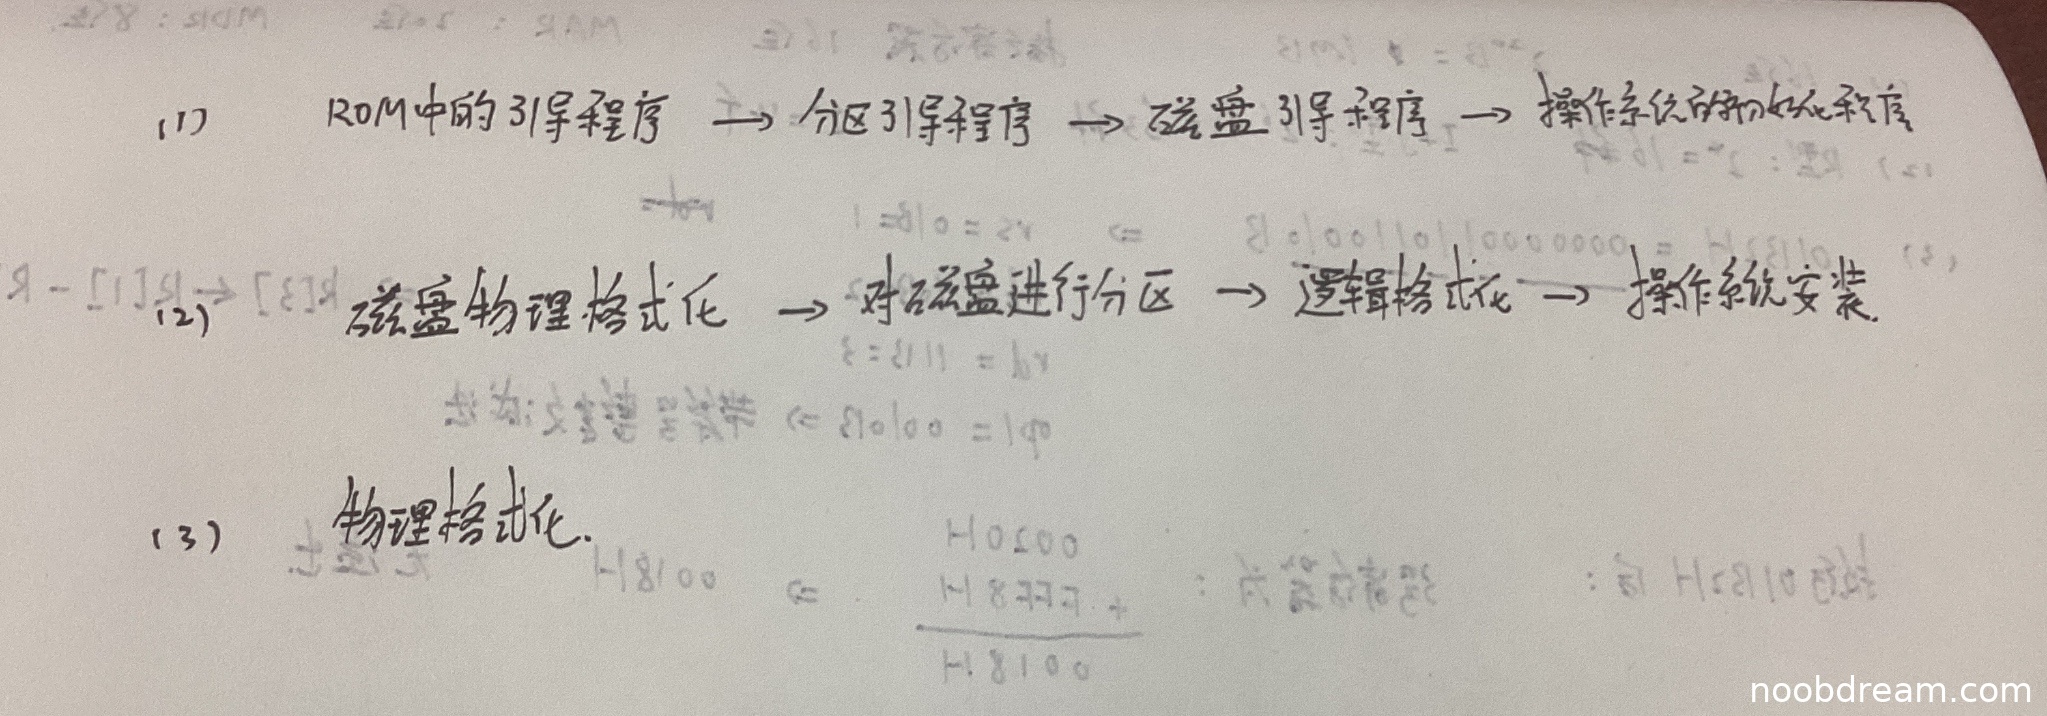 (1) ROM中的引导程序 → 分区引导程序 → 磁盘引导程序 → 操作系统的初始化程序
(2) 磁盘物理格式化 → 对磁盘进行分区 → 逻辑格式化 → 操作系统安装.
(3) 物理格式化.
noobdream.com